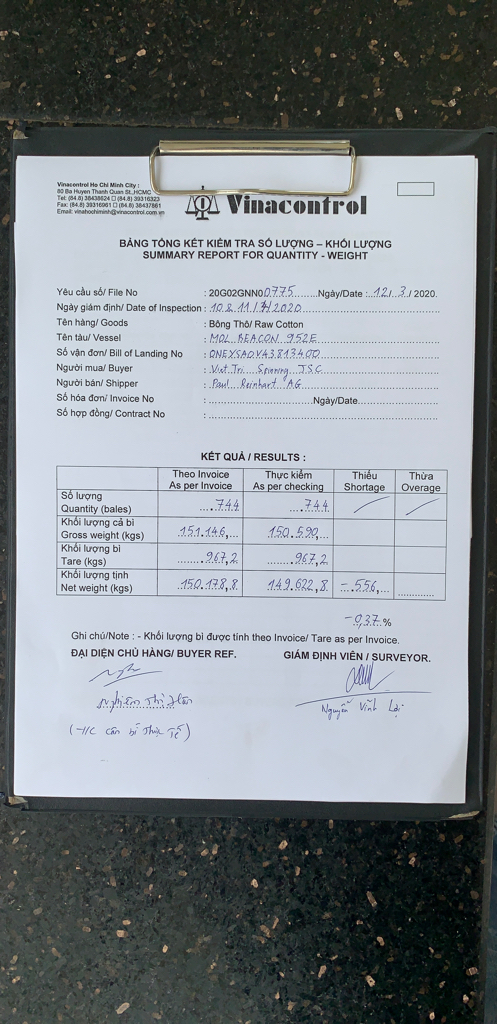 Vinacontrol Ho Chi Minh City :
80 Ba Huyen Thanh Quan St.,HCMC
Tel: (84.8) 38438624 □ (84.8) 39316323
Fax: (84.8) 39316961 □ (84.8) 38437861
Email: vinahochiminh@vinacontrol.com.vn
Vinacontrol
BẢNG TỔNG KẾT KIỂM TRA SỐ LƯỢNG – KHỐI LƯỢNG
SUMMARY REPORT FOR QUANTITY - WEIGHT
Yêu cầu số/ File No : 20G02GNN00775 Ngày/Date : 12/3/2020.
Ngày giám định/ Date of Inspection : 10 & 11/3/2020
Tên hàng/ Goods : Bông Thô/ Raw Cotton
Tên tàu/ Vessel : MOL BEACON 952E
Số vận đơn/ Bill of Landing No : ONEYSAOV43813400
Người mua/ Buyer : Viet Tri Spinning JSC
Người bán/ Shipper : Paul Reinhart AG
Số hóa đơn/ Invoice No : Ngày/Date
Số hợp đồng/ Contract No :
KẾT QUẢ / RESULTS :
Theo Invoice Thực kiểm Thiếu Thừa
As per Invoice As per checking Shortage Overage
Số lượng
Quantity (bales) 744 744
Khối lượng cả bì
Gross weight (kgs) 151.146, 150.590,
Khối lượng bì
Tare (kgs) 967,2 967,2
Khối lượng tịnh
Net weight (kgs) 150.178,8 149.622,8 -556,
-0,37.%
Ghi chú/Note : - Khối lượng bì được tính theo Invoice/ Tare as per Invoice.
ĐẠI DIỆN CHỦ HÀNG/ BUYER REF. GIÁM ĐỊNH VIÊN / SURVEYOR.
Nghiêm Thị
Nguyễn Vĩnh Lợi
cân bì thực tế)